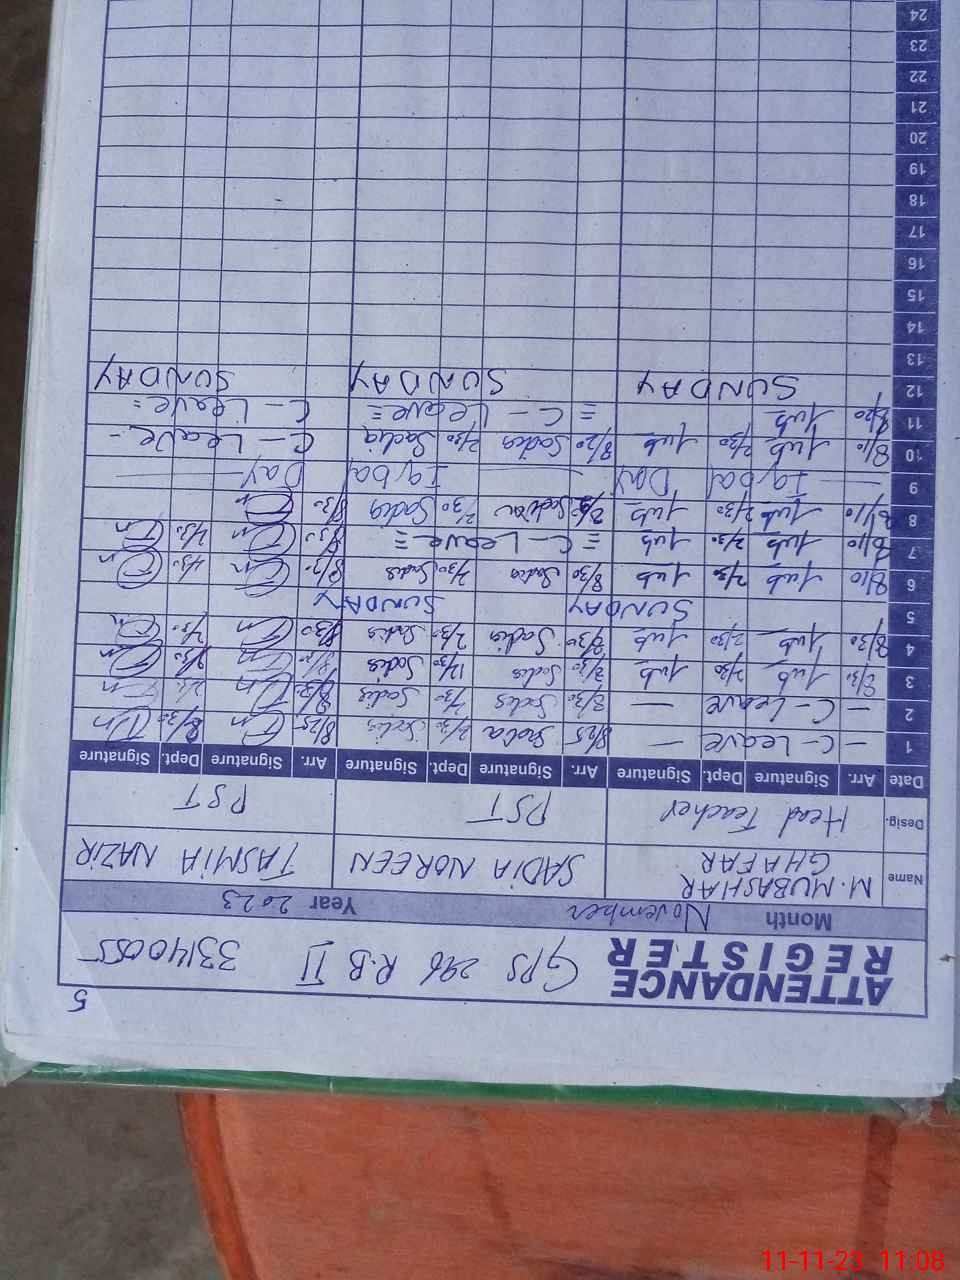 5
ATTENDANCE REGISTER GPS 296 R.B II 33140055
Month November Year 2023
Name M. MUBASHAR GHAFAR SADIA NOREEN TASMIA NAZIR
Desig. Head Teacher PST PST
Date Arr. Signature Dept. Signature Arr. Signature Dept. Signature Arr. Signature Dept. Signature
1 — C Leave — 8/25 2/30 8/25
2 — C-Leave — 8/30 Sadia 2/30 Sadia
3 8/30 Jub 2/30 Jub 8/30 Sadia Sadia
4 8/30 Jub 2/30 Jub 8/30 Sadia 2/30 Sadia 8/30
5 SUNDAY SUNDAY
6 8/10 Jub 2/30 Jub 8/30 Sadia 2/30 Sadia
7 8/10 Jub 2/30 Jub = C-Leave = 8/30
8 8/10 Jub 2/30 Jub 2/30 Sadia 8/30
9 — Iqbal Day — Iqbal Day —
10 8/10 Jub 2/30 Jub 8/20 Sadia 2/30 Sadia C-Leave -
11 8/20 Jub = C-Leave = C-Leave =
12 SUNDAY SUNDAY SUNDAY
13
14
15
16
17
18
19
20
21
22
23
24
11-11-23 11:08